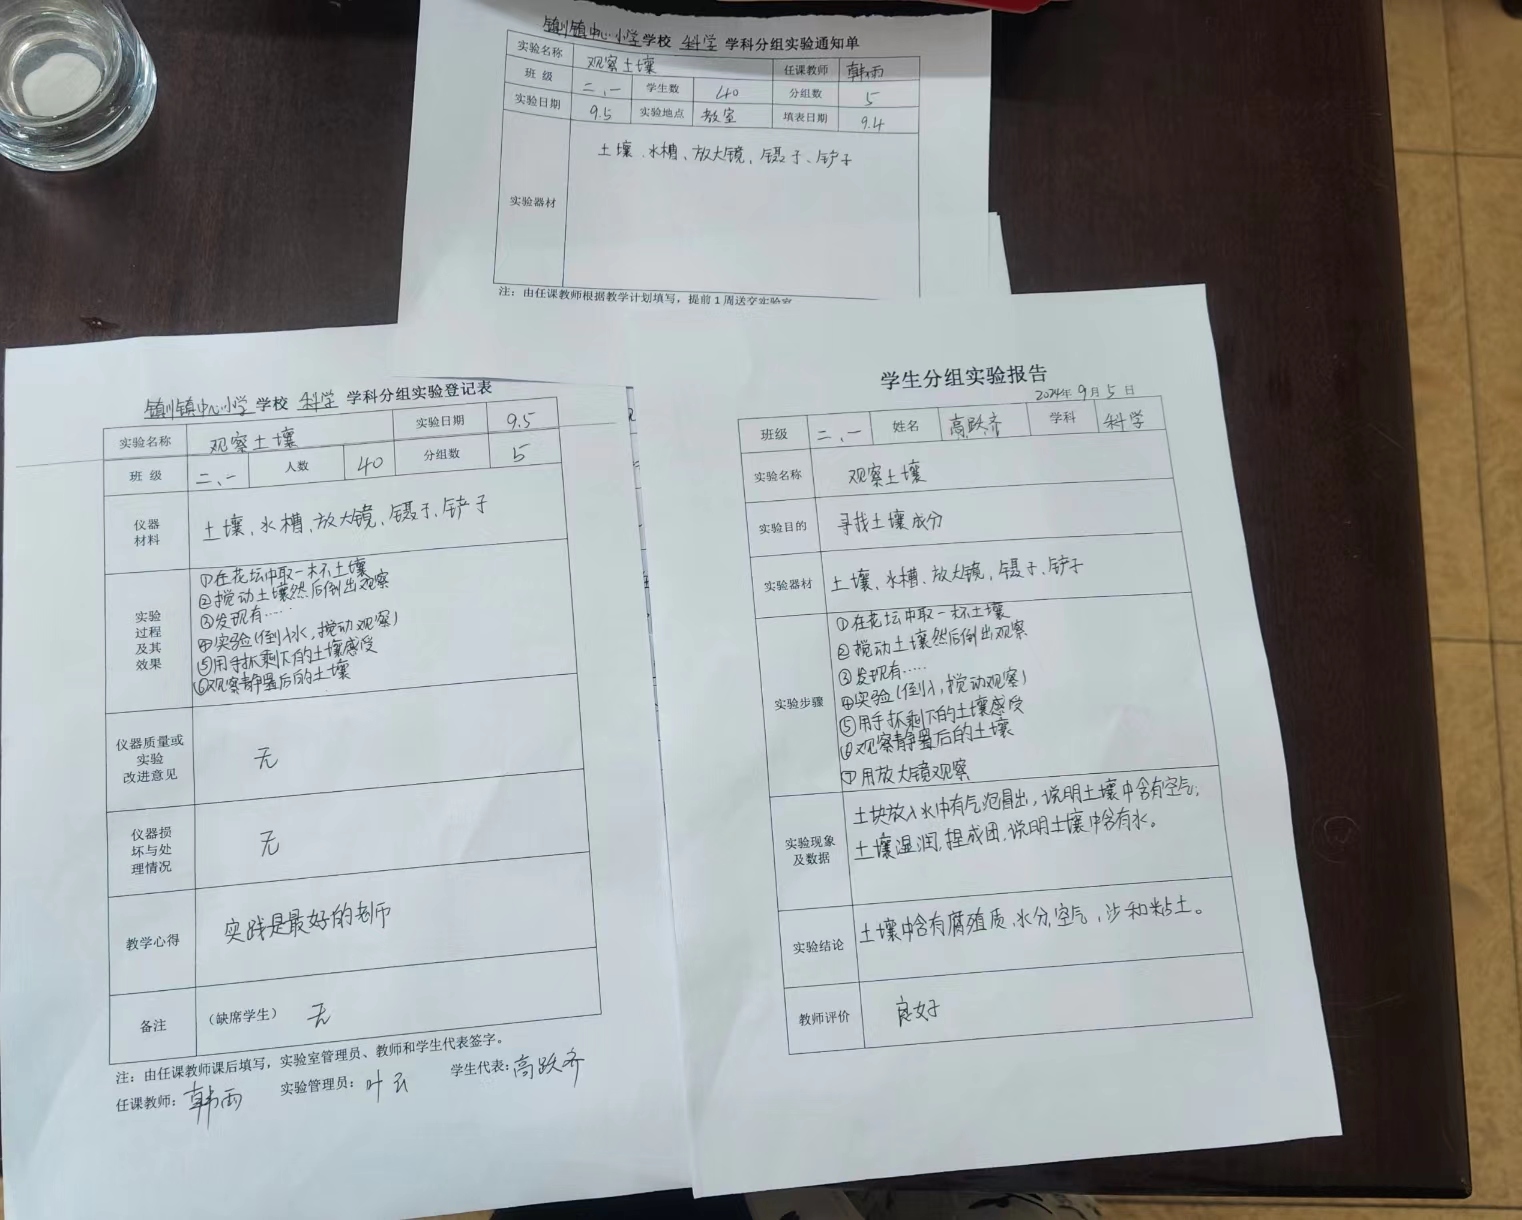 镇川镇中心小学学校 科学 学科分组实验通知单
实验名称 观察土壤 任课教师 韩雨
班 级 二、一 学生数 40 分组数 5
实验日期 9.5 实验地点 教室 填表日期 9.4
实验器材 土壤、水槽、放大镜、镊子、铲子
注：由任课教师根据教学计划填写，提前1周送交实验室
镇川镇中心小学 学校 科学 学科分组实验登记表
实验名称 观察土壤 实验日期 9.5
班 级 二、一 人数 40 分组数 5
仪器
材料
土壤、水槽、放大镜、镊子、铲子
实验
过程
及其
效果
①在花坛中取一杯土壤
②搅动土壤然后倒出观察
③发现有……
④实验(倒入水，搅动观察)
⑤用手抓剩下的土壤感受
⑥观察静置后的土壤
仪器质量或
实验
改进意见
无
仪器损
坏与处
理情况
无
教学心得 实践是最好的老师
备注 （缺席学生） 无
注：由任课教师课后填写，实验室管理员、教师和学生代表签字。
任课教师：韩雨 实验管理员：叶云 学生代表：高跃齐
学生分组实验报告
2024年 9月 5 日
班级 二、一 姓名 高跃齐 学科 科学
实验名称 观察土壤
实验目的 寻找土壤成分
实验器材 土壤、水槽、放大镜、镊子、铲子
实验步骤
①在花坛中取一杯土壤
②搅动土壤然后倒出观察
③发现有……
④实验(倒入，搅动观察)
⑤用手抓剩下的土壤感受
⑥观察静置后的土壤
⑦用放大镜观察
实验现象
及数据
土块放入水中有气泡冒出，说明土壤中含有空气；
土壤湿润，捏成团，说明土壤中含有水。
实验结论 土壤中含有腐殖质、水分、空气，沙和粘土。
教师评价 良好